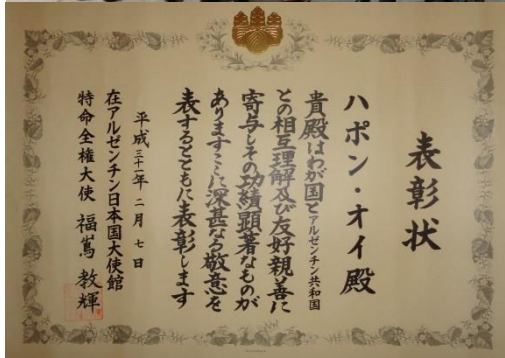 表彰状
ハポン・オイ殿
貴殿はわが国とアルゼンチン共和国
との相互理解及び友好親善に
寄与しその功績顕著なものが
ありますここに深甚なる敬意を
表するとともに表彰します
平成三十一年二月七日
在アルゼンチン日本国大使館
特命全権大使 福嶌教輝